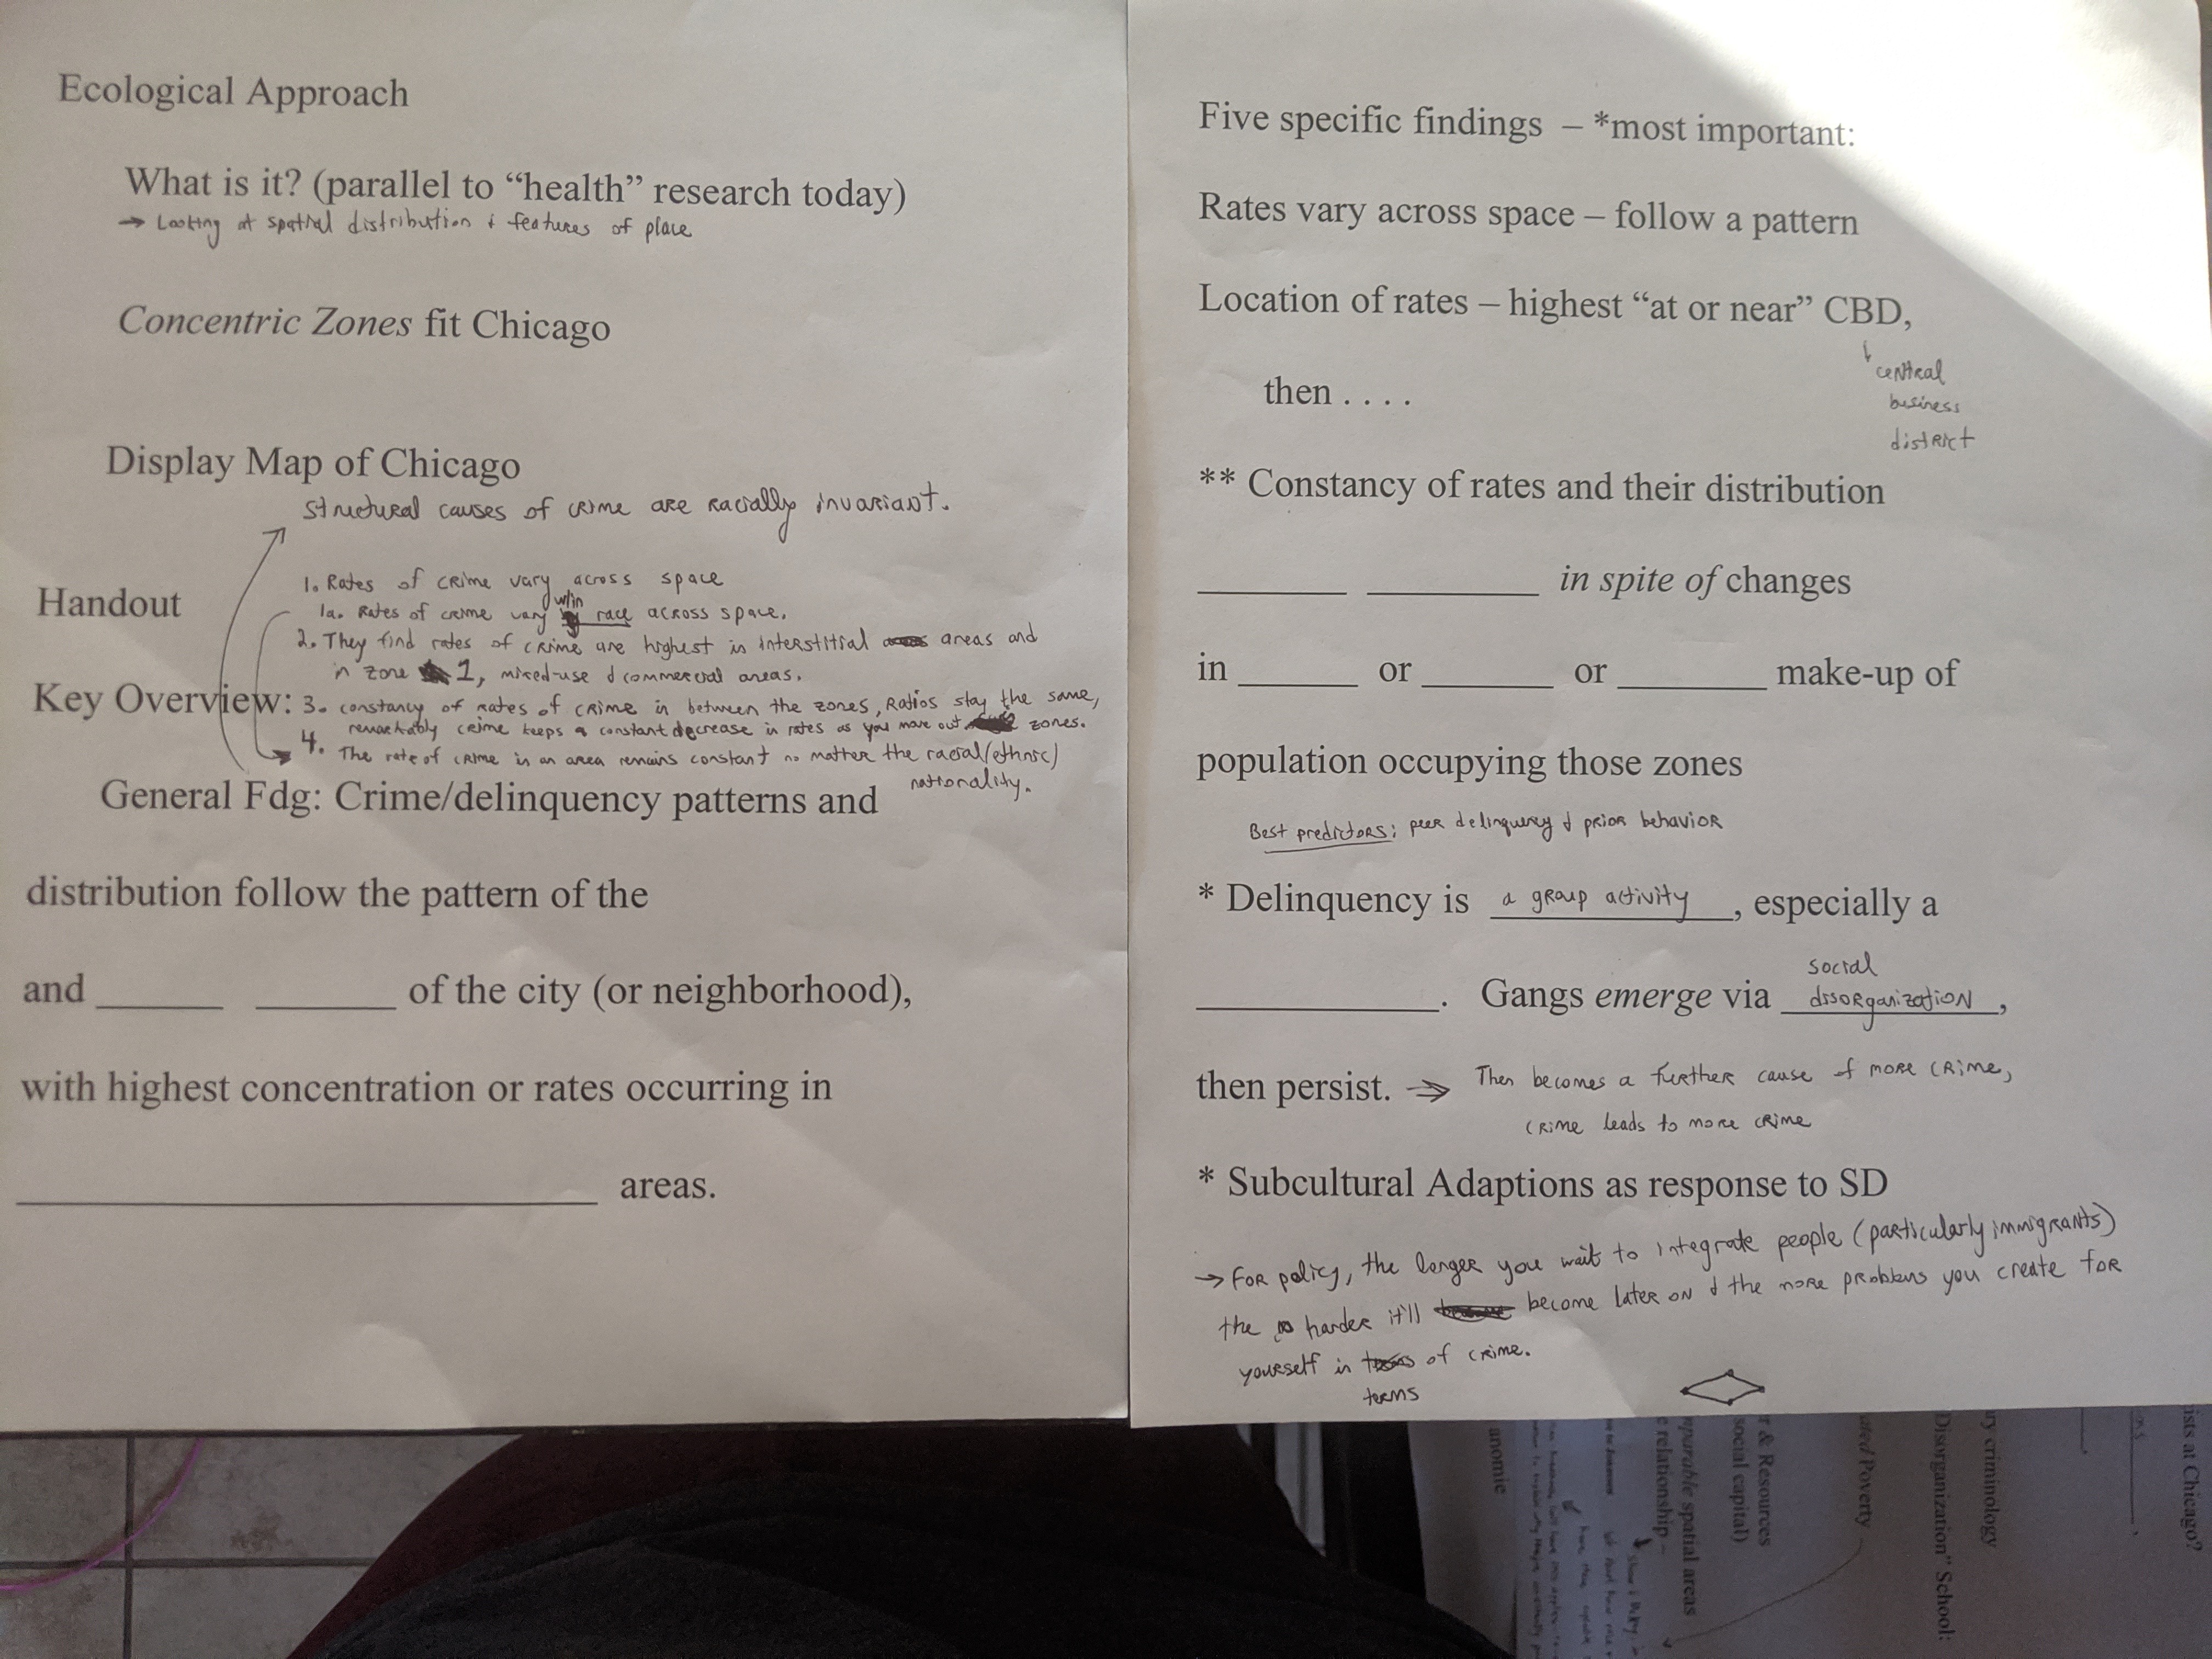 Ecological Approach
What is it? (parallel to “health” research today)
→ Looking at spatial distribution & features of place
Concentric Zones fit Chicago
Display Map of Chicago
structural causes of crime are racially invariant.
Handout
1. Rates of crime vary across space
1a. Rates of crime vary w/in race across space.
2. They find rates of crime are highest in interstitial areas and
in zone 1, mixed-use & commercial areas.
Key Overview:
3. constancy of rates of crime in between the zones, Ratios stay the same,
remarkably crime keeps a constant decrease in rates as you move out zones.
4. The rate of crime in an area remains constant no matter the racial/(ethnic)
nationality.
General Fdg: Crime/delinquency patterns and
distribution follow the pattern of the
and ______ ______ of the city (or neighborhood),
with highest concentration or rates occurring in
______ areas.
Five specific findings – *most important:
Rates vary across space – follow a pattern
Location of rates – highest “at or near” CBD,
central
business
district
then . . . .
** Constancy of rates and their distribution
______ ______ in spite of changes
in ______ or ______ or ______ make-up of
population occupying those zones
Best predictors: peer delinquency & prior behavior
* Delinquency is a group activity, especially a
______. Gangs emerge via social disorganization,
then persist. → Then becomes a further cause of more crime,
crime leads to more crime
* Subcultural Adaptions as response to SD
→ For policy, the longer you wait to integrate people (particularly immigrants)
the harder it'll become later on & the more problems you create for
yourself in terms of crime.
anomie
r & Resources
social capital)
mparable spatial areas
relationship –
ated Poverty
Disorganization” School:
ry criminology
ists at Chicago?